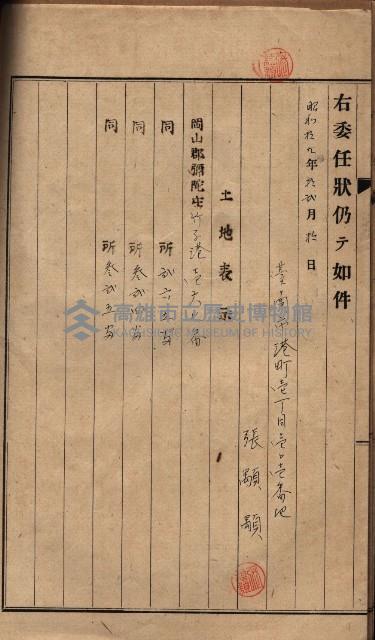 右委任狀仍テ如件
昭和拾九年拾弐月拾日
臺南市港町壱丁目壱〇壱番地
張顒顒
土地表示
岡山郡彌陀庄竹子港壱六
同 所弐六
同 所参弐四
同 所参弐五
高雄市立歷史博物館
KAOHSIUNG MUSEUM OF HISTORY